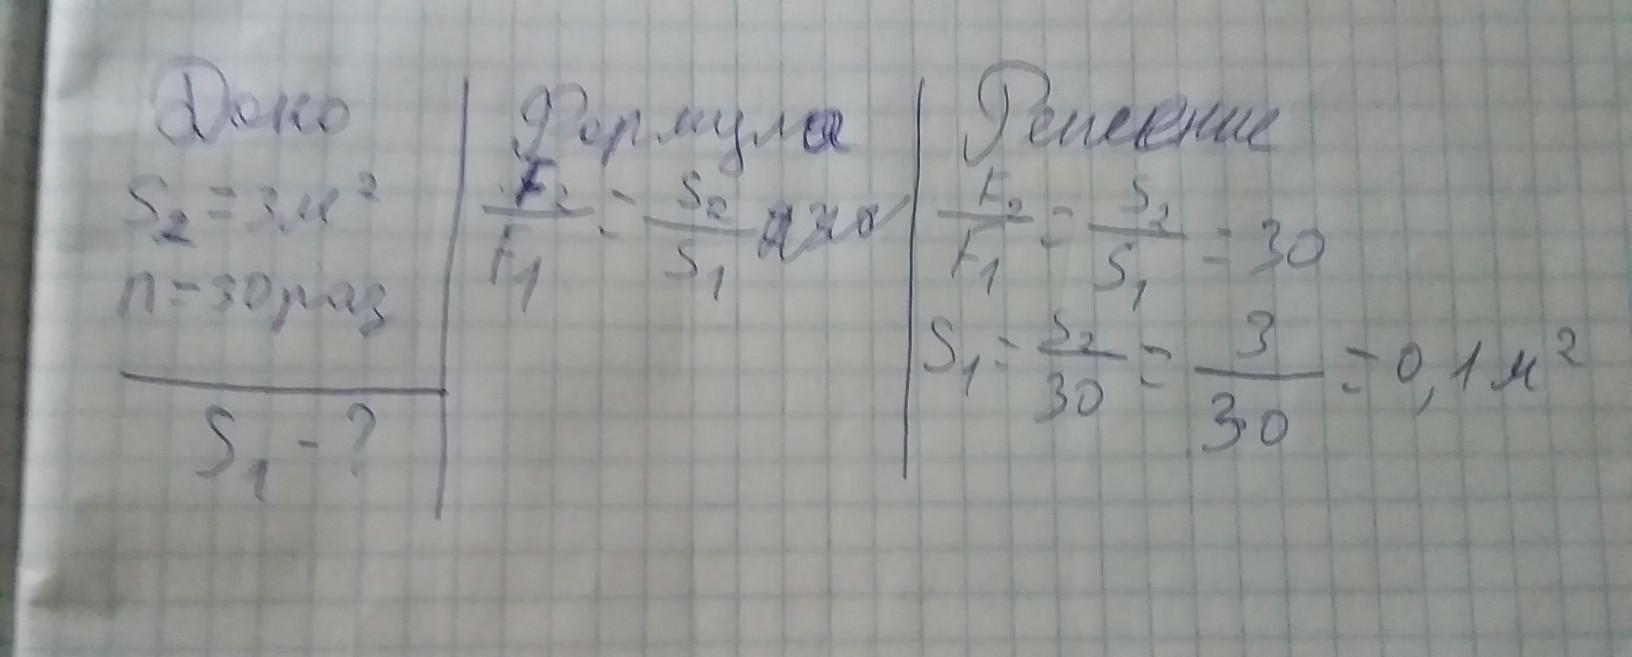 Дано
S₂ = 3 м²
n = 30 раз
S₁ - ?
Формула
F₂/F₁ = S₂/S₁
Решение
F₂/F₁ = S₂/S₁ = 30
S₁ = S₂/30 = 3/30 = 0,1 м²